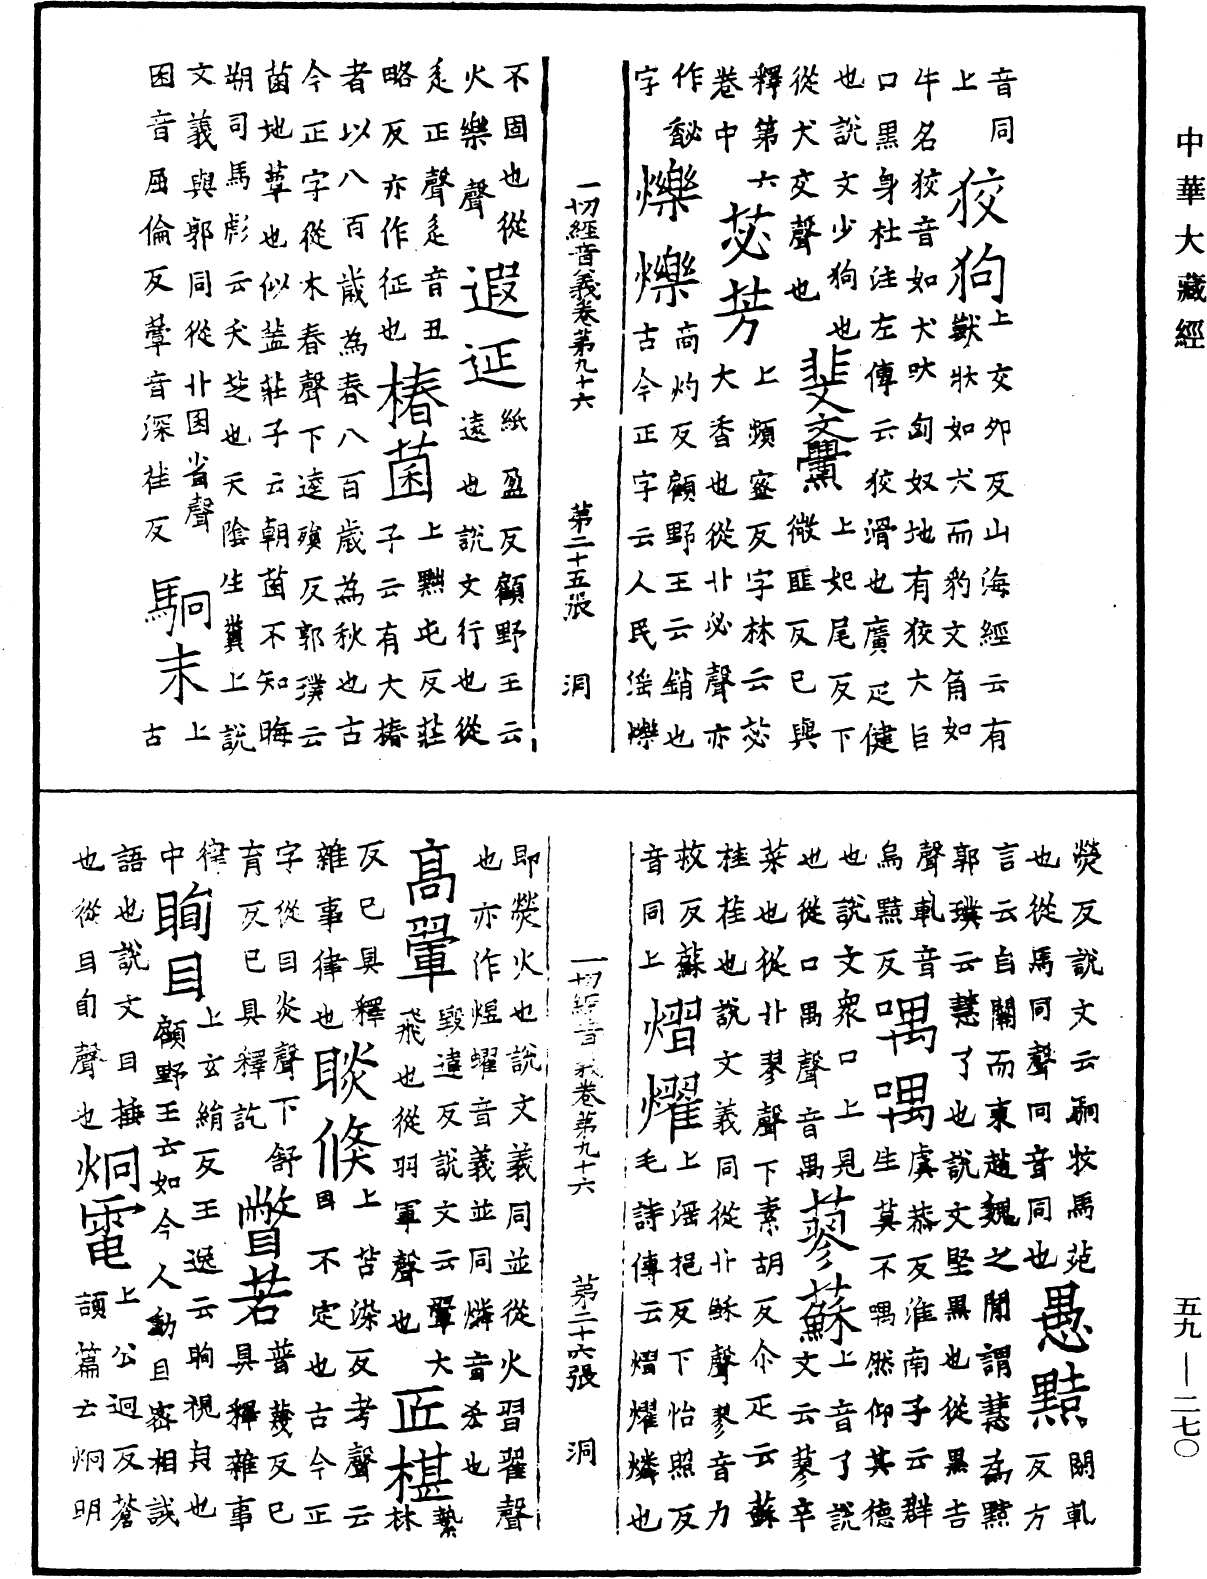 中華大藏經
音同
上
狡狗
上交卯反山海經云有
獸狀如犬而豹文角如
牛名狡音如犬吠匈奴地有狡犬巨
口黑身杜注左傳云狡猾也廣疋健
也說文少狗也
從犬交聲也
斐亹
上妃尾反下
微匪反已與
釋第六
卷中
苾芳
上頻蜜反字林云苾
大香也從艸必聲亦
作馝
字
爍爍
高灼反顧野王云銷也
古今正字云人民淫爍
一切經音義卷第九十六 第二十五張 洞
不固也從
火樂聲
遐延
紙盈反顧野王云
遠也說文行也從
辵正聲辵音丑
略反亦作征也
椿菌
上黜屯反莊
子云有大椿
者以八百歲為春八百歲為秋也古
今正字從木春聲下逵殞反郭璞云
菌地蕈也似蓋莊子云朝菌不知晦
朔司馬彪云天芝也天陰生糞上說
文義與郭同從艸囷省聲
囷音屈倫反蕈音深荏反
駉末
上
古
熒反說文云駉牧馬苑
也從馬同聲冋音同也
愚黠
閑軋
反方
言云自關而東趙魏之閒謂慧為黠
郭璞云慧了也說文堅黑也從黑吉
聲軋音
烏黠反
喁喁
虞恭反淮南子云群
生莫不喁然仰其德
也說文衆口上見
也從口禺聲音禺
蓼蘇
上音了說
文云蓼辛
菜也從艸翏聲下素胡反尒疋云蘇
桂荏也說文義同從艸穌聲翏音力
救反蘇
音同上
熠燿
上淫挹反下怡照反
毛詩傳云熠燿燐也
一切經音義卷第九十六 第二十六張 洞
即熒火也說文義同並從火習翟聲
也亦作煜耀音義並同燐音㷠也
高翬
毀違反說文云翬大
飛也從羽軍聲也
匠椹
縶
林
反已具釋
雜事律也
睒倏
上苫染反考聲云
目不定也古今正
字從目炎聲下舒
育反已具釋訖
瞥若
普蔑反已
具釋雜事
律
中
眴目
上玄絹反王逸云眴視皃也
顧野王云如今人動目密相誡
語也說文目搖
也從目旬聲也
炯電
上公迥反蒼
頡篇云炯明
五九—二七〇